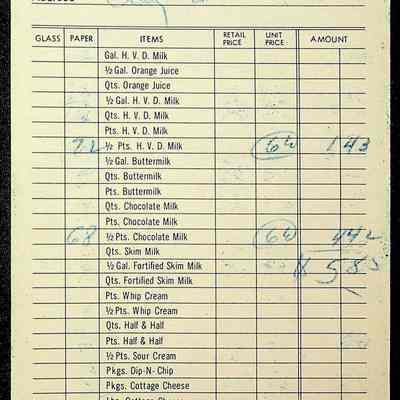 GLASS PAPER ITEMS RETAIL PRICE UNIT PRICE AMOUNT
Gal. H. V. D. Milk
½ Gal. Orange Juice
Qts. Orange Juice
½ Gal. H. V. D. Milk
Qts. H. V. D. Milk
Pts. H. V. D. Milk
22 ½ Pts. H. V. D. Milk 6½ 1 43
½ Gal. Buttermilk
Qts. Buttermilk
Pts. Buttermilk
Qts. Chocolate Milk
Pts. Chocolate Milk
68 ½ Pts. Chocolate Milk 6½ 4 42
Qts. Skim Milk
½ Gal. Fortified Skim Milk 5 85
Qts. Fortified Skim Milk
Pts. Whip Cream
½ Pts. Whip Cream
Qts. Half & Half
Pts. Half & Half
½ Pts. Sour Cream
Pkgs. Dip-N-Chip
Pkgs. Cottage Cheese